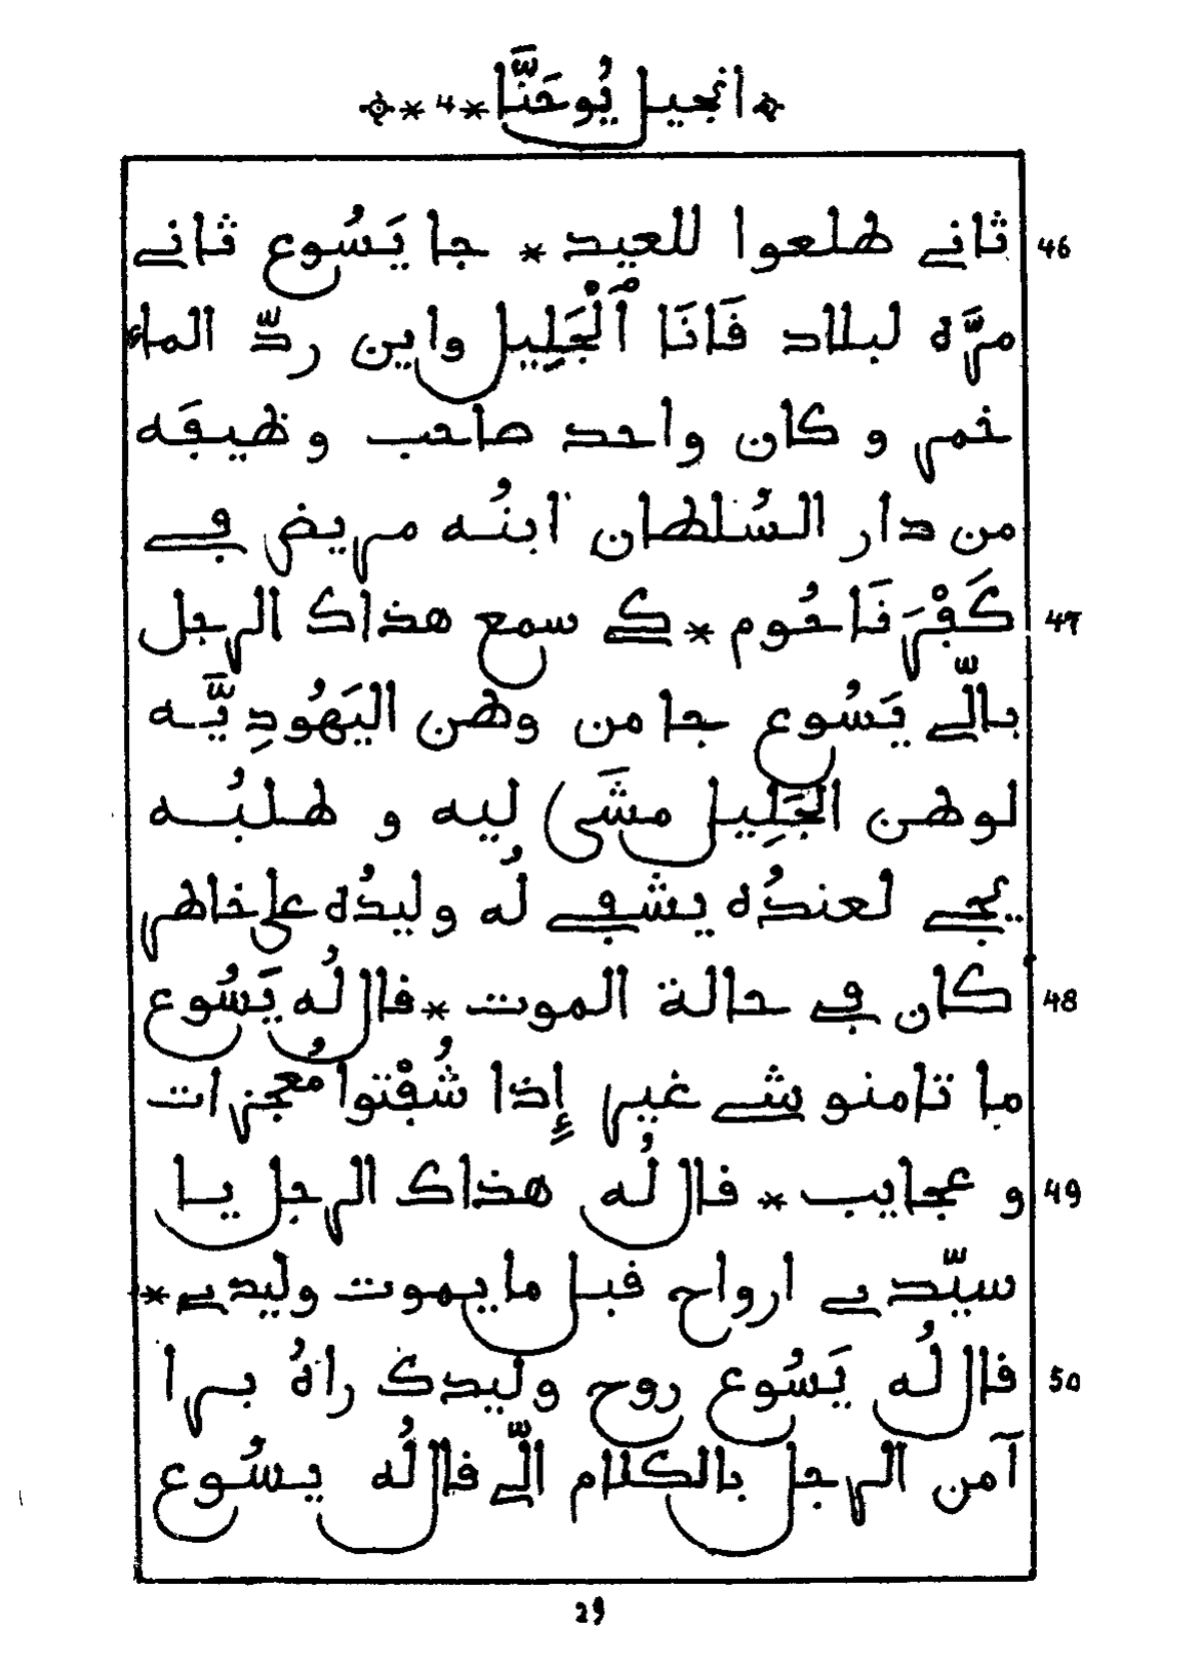 انجيل يُوحَنَّا * 4 *
46 ثاني طلعوا للعيد * جا يَسُوع ثاني
مرَّه لبلاد فَانَا ٱلْجَلِيل واين ردّ الماء
خمر و كان واحد صاحب وظيفَه
من دار السُلطان ابنُه مريض في
47 كَفْرَنَاحُوم * كي سمع هذاك الرجل
بالّي يَسُوع جا من وطن اليَهُودِيَّه
لوطن الجَلِيل مشَى ليه و طلبُه
يجي لعندُه يشفي لُه وليدُه على خاطر
48 كان في حالة الموت * فال لُه يَسُوع
ما تامنو شي غير إذا شُفْتوا مُعجزات
49 و عجايب * فال لُه هذاك الرجل يا
سيّدي ارواح فبل ما يموت وليدي *
50 فال لُه يَسُوع روح وليدك راهُ برا
آمن الرجل بالكلام الّي فال لُه يسُوع
29